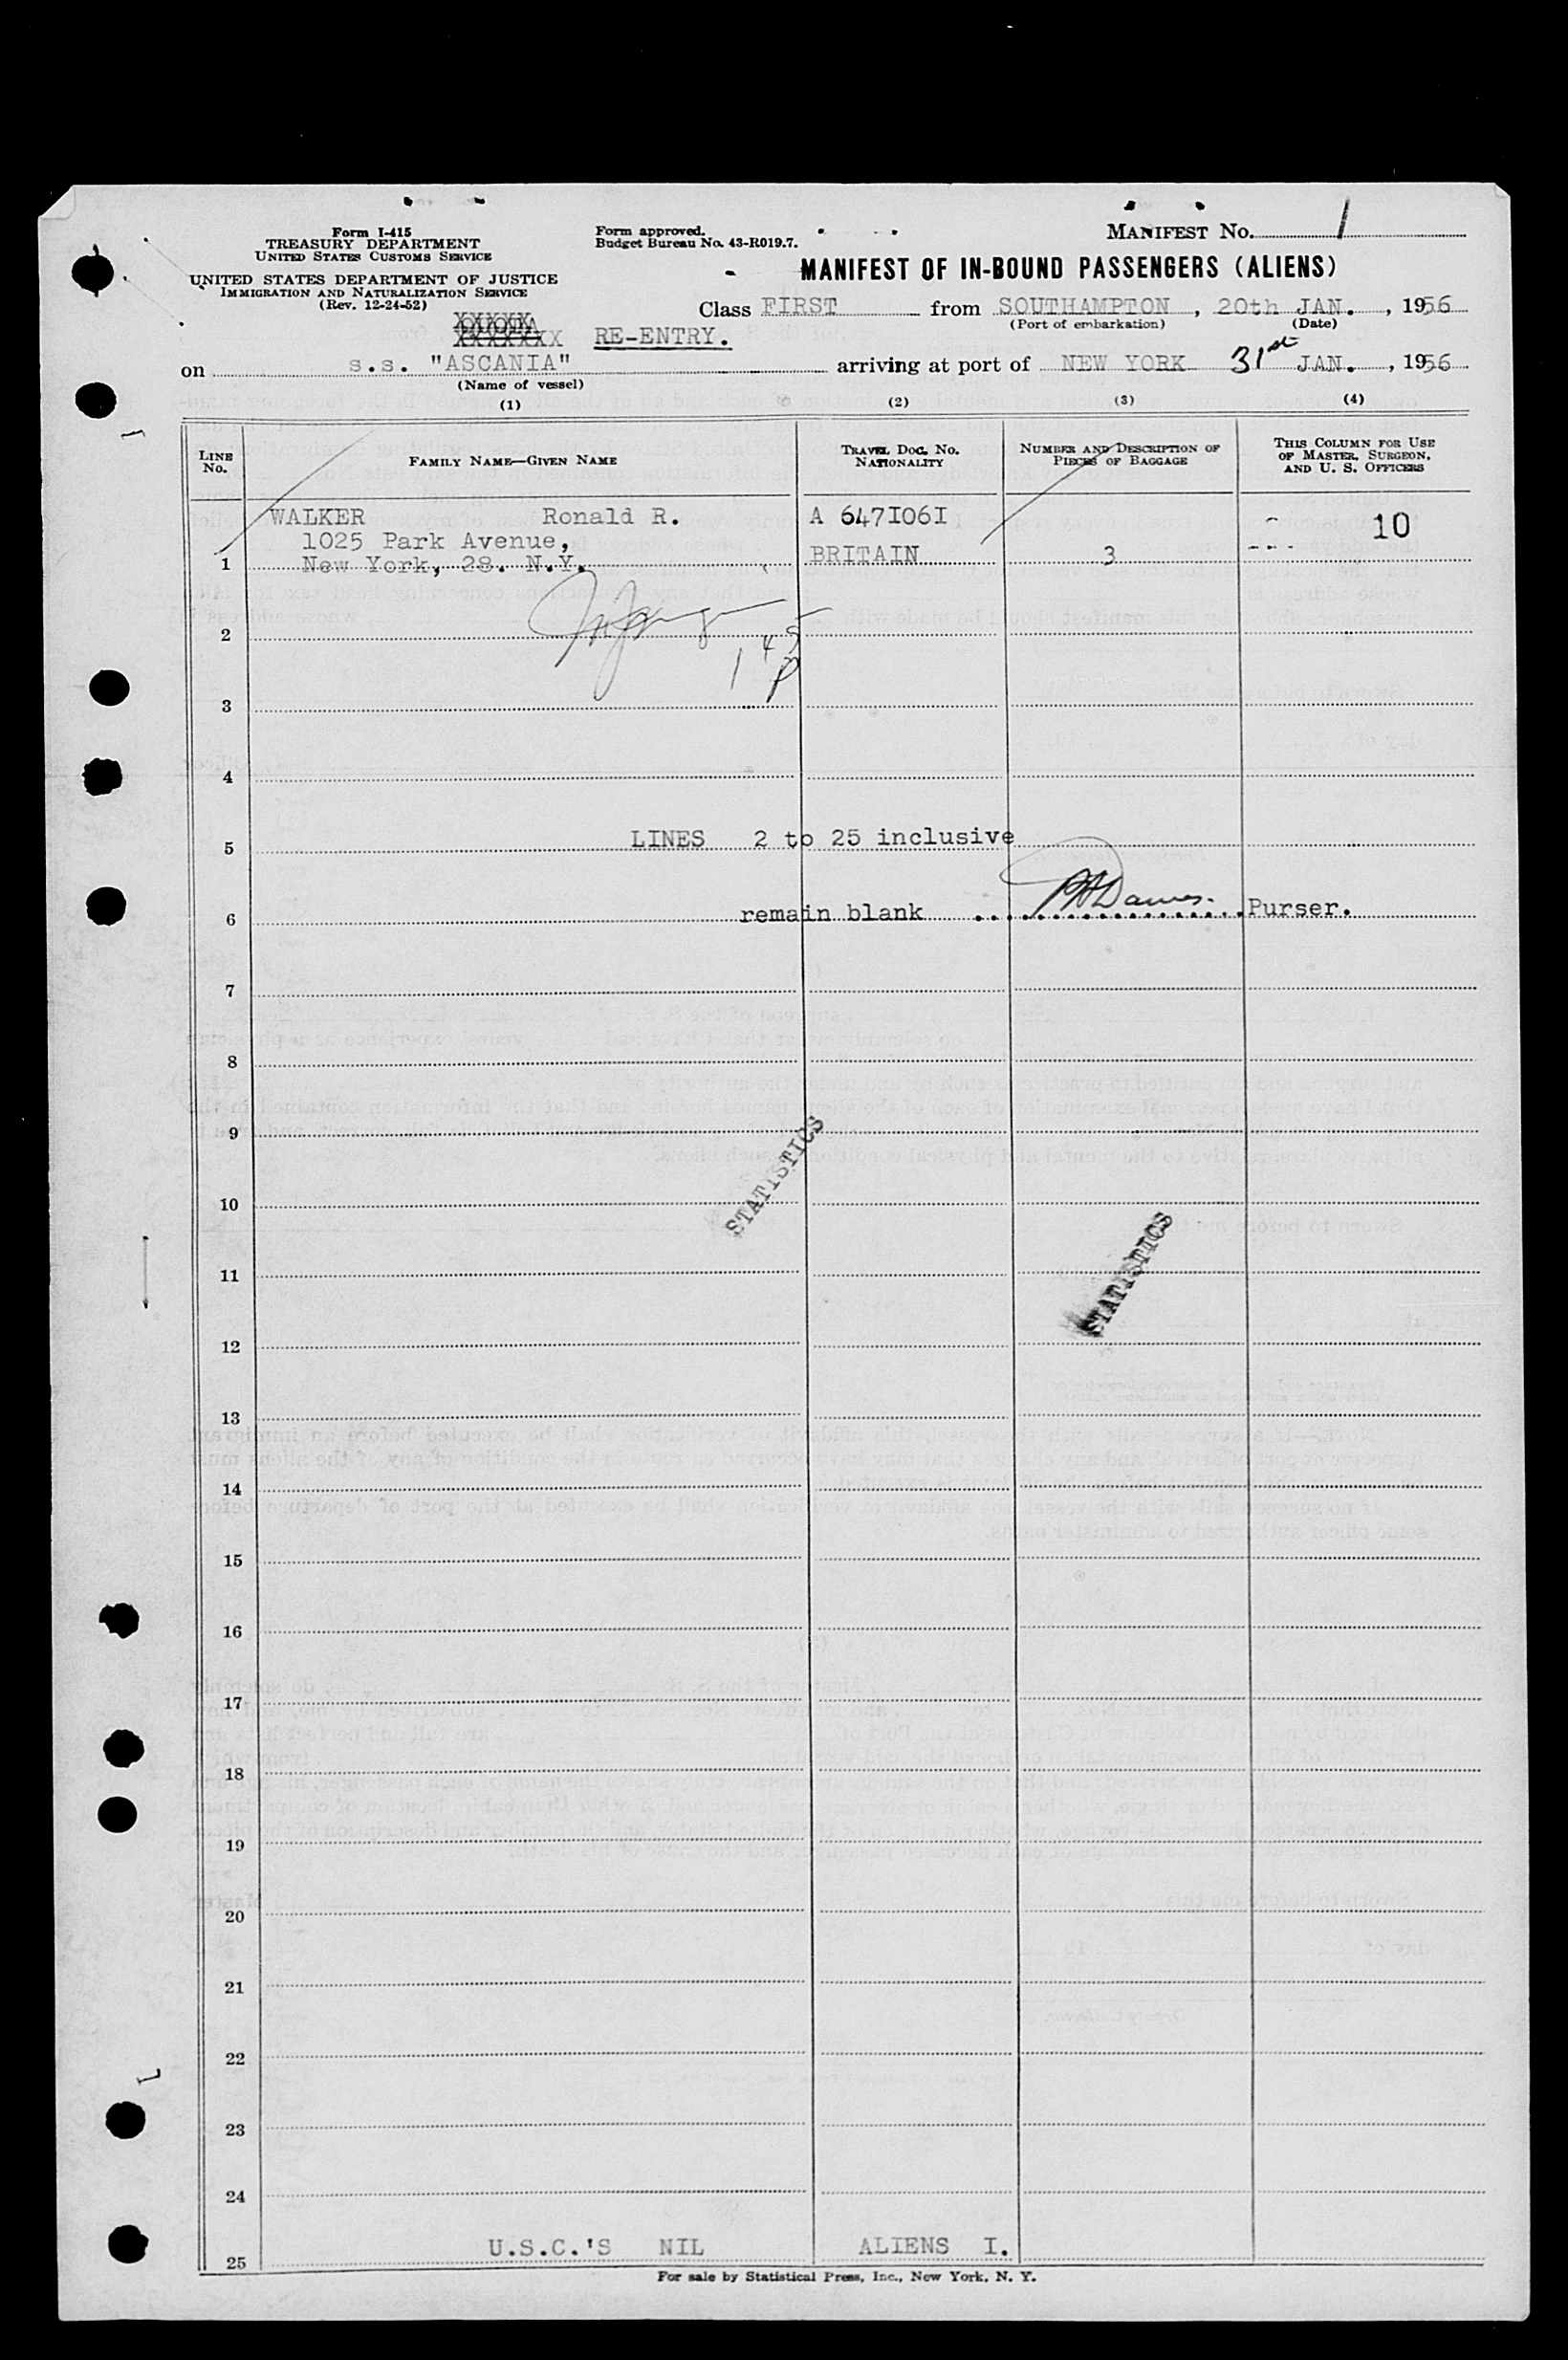 Form I-415
TREASURY DEPARTMENT
UNITED STATES CUSTOMS SERVICE
UNITED STATES DEPARTMENT OF JUSTICE
IMMIGRATION AND NATURALIZATION SERVICE
(Rev. 12-24-52)
Form approved.
Budget Bureau No. 43-R019.7.
MANIFEST No. 1
MANIFEST OF IN-BOUND PASSENGERS (ALIENS)
Class FIRST from SOUTHAMPTON, 20th JAN., 1956
(Port of embarkation) (Date)
RE-ENTRY.
on s.s. "ASCANIA" arriving at port of NEW YORK 31st JAN., 1956
(Name of vessel)
(1) (2) (3) (4)
LINE No.
FAMILY NAME—GIVEN NAME
TRAVEL DOC. No. NATIONALITY
NUMBER AND DESCRIPTION OF PIECES OF BAGGAGE
THIS COLUMN FOR USE OF MASTER, SURGEON, AND U. S. OFFICERS
WALKER Ronald R. A 647I06I 10
1025 Park Avenue,
1 New York, 28. N.Y. BRITAIN 3
2
1 45 P
3
4
5 LINES 2 to 25 inclusive
6 remain blank Purser.
7
8
9
STATISTICS
10
STATISTICS
11
12
13
14
15
16
17
18
19
20
21
22
23
24
25 U.S.C.'S NIL ALIENS I.
For sale by Statistical Press, Inc., New York, N. Y.